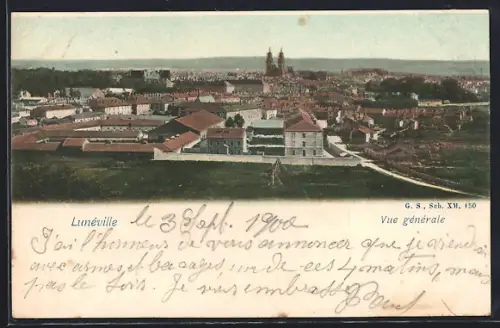 G. S., Sch. XM. 150
Lunéville le 3 Sept. 1900 Vue générale
J'ai l'honneur de vous annoncer que je viendrai
avec armes et bagages, un de ces 4 matins, mais
pas le soir. Je vous embrasse